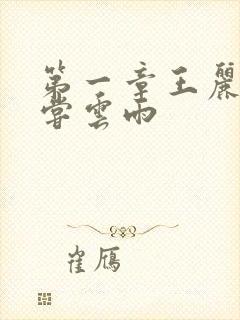 第一章王麗
嘗雲雨
崔雁